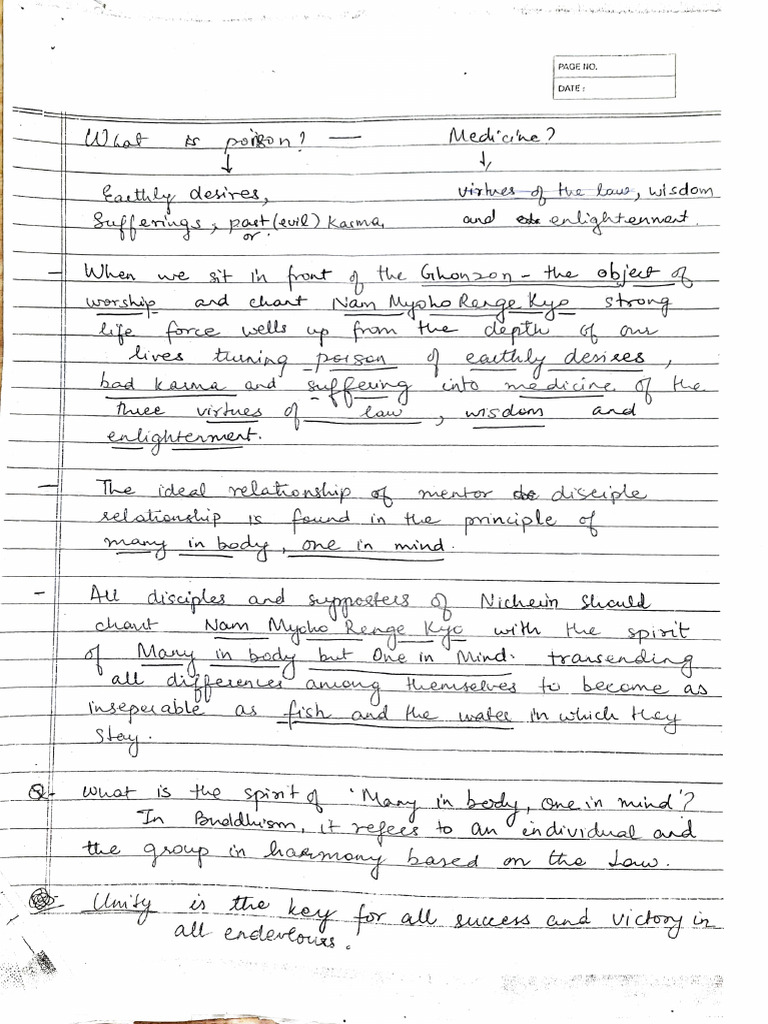 PAGE NO.
DATE :
What is poison? — Medicine?
↓ ↓
Earthly desires, virtues of the law, wisdom
Sufferings, past (evil) Karma, and enlightenment.
or
- When we sit in front of the Ghonzon - the object of
worship and chant Nam Myoho Renge Kyo strong
life force wells up from the depth of our
lives turning poison of earthly desires,
bad karma and suffering into medicine of the
three virtues of law, wisdom and
enlightenment.
- The ideal relationship of mentor disciple
relationship is found in the principle of
many in body, one in mind.
- All disciples and supporters of Nicherin should
chant Nam Myoho Renge Kyo with the spirit
of Many in body but One in Mind. transending
all differences among themselves to become as
inseperable as fish and the water in which they
stay.
Q- What is the spirit of 'Many in body, one in mind'?
In Buddhism, it refers to an individual and
the group in harmony based on the Law.
- Unity is the key for all success and victory in
all endevlours.